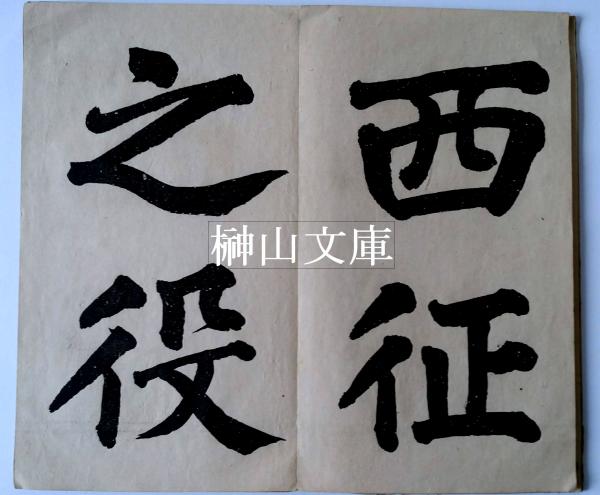 西征
之役
榊山文庫